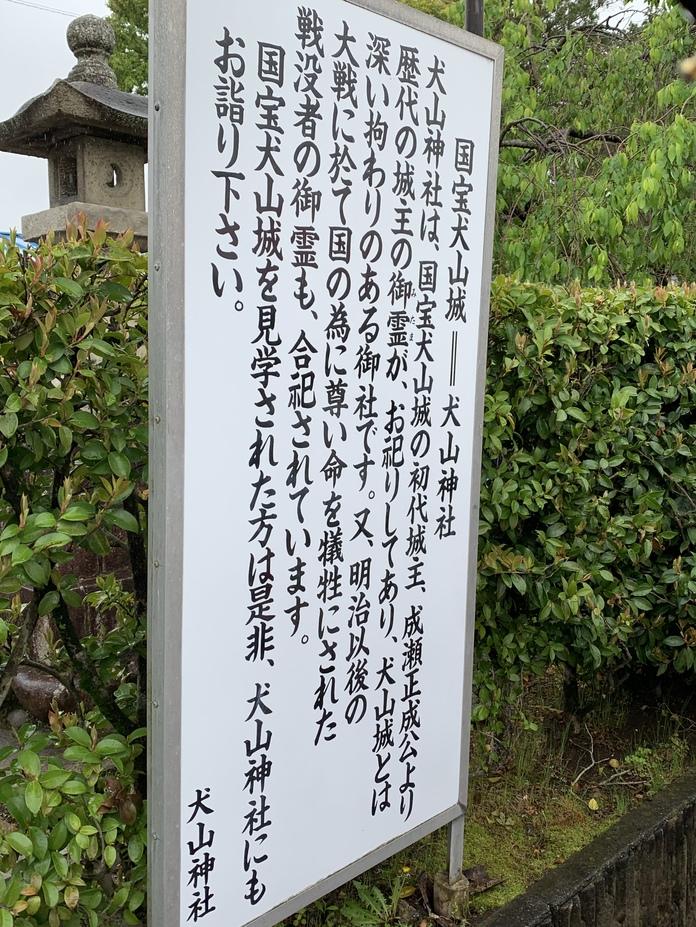 国宝犬山城 ═ 犬山神社
犬山神社は、国宝犬山城の初代城主、成瀬正成公より
歴代の城主の御霊が、お祀りしてあり、犬山城とは
みたま
深い拘わりのある御社です。又、明治以後の
大戦に於て国の為に尊い命を犠牲にされた
戦没者の御霊も、合祀されています。
国宝犬山城を見学された方は是非、犬山神社にも
お詣り下さい。
犬山神社